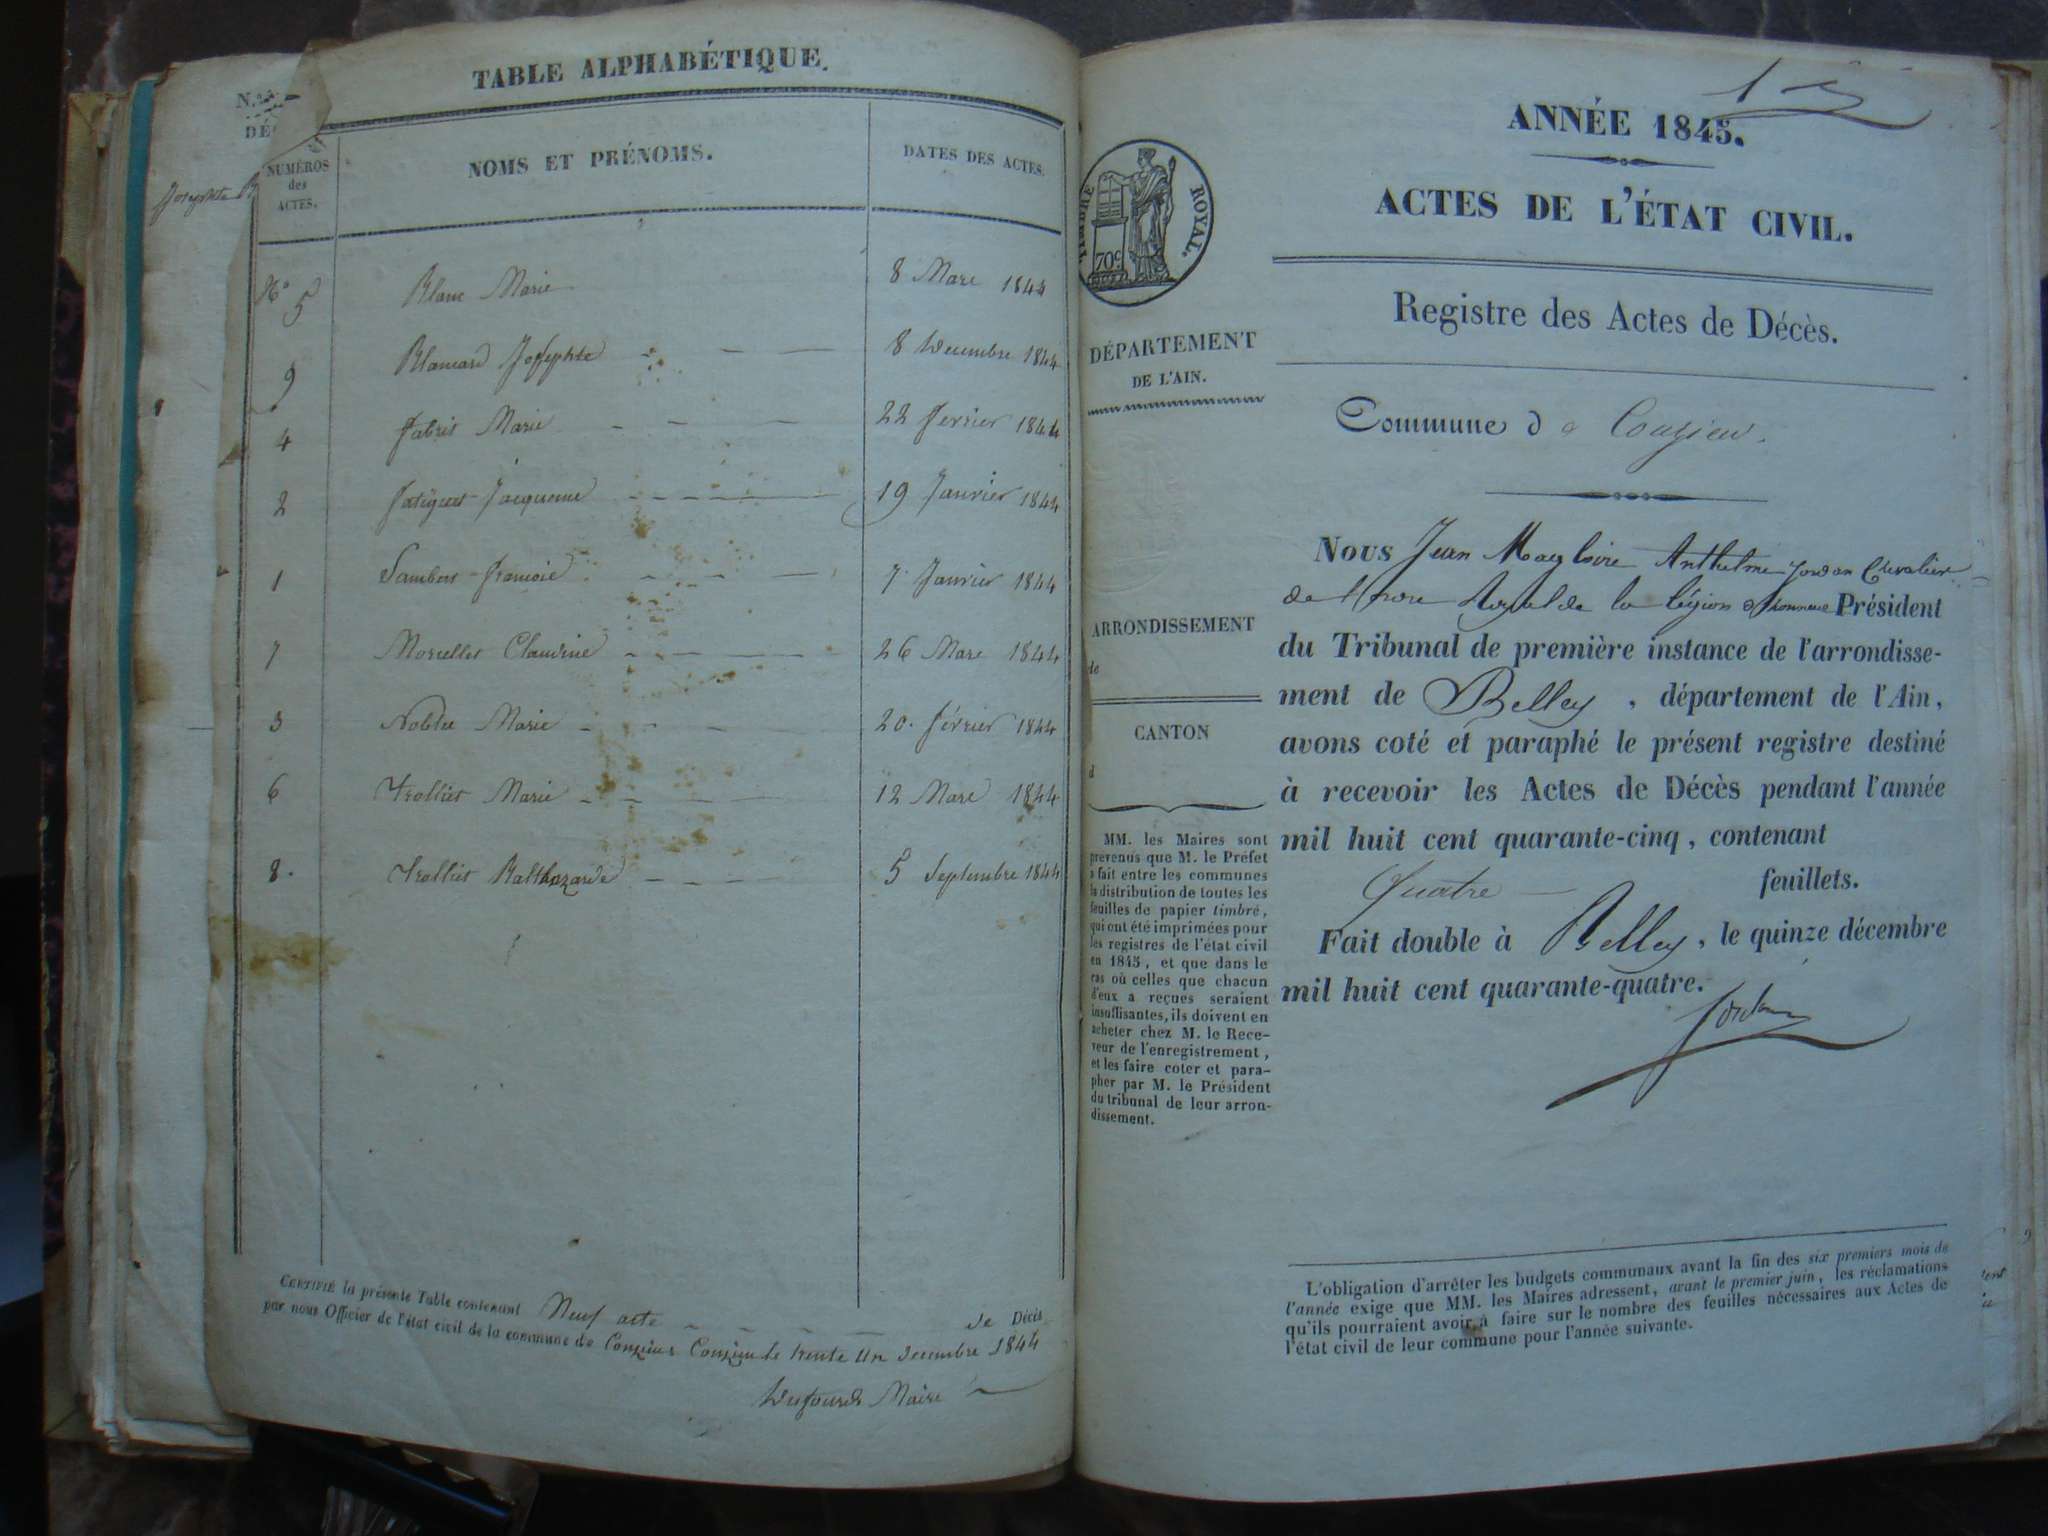 TABLE ALPHABÉTIQUE.
NUMÉROS
des
ACTES.
NOMS ET PRÉNOMS.
DATES DES ACTES.
Nº 5 Blanc Marie 8 Mars 1844
9 Blancard Josephte 8 Decembre 1844
4 Fabris Marie 22 Fevrier 1844
2 Jacqueme 19 Janvier 1844
1 Francois 7 Janvier 1844
7 Claudine 26 Mars 1844
3 Marie 20 Février 1844
6 Trolliet Marie 12 Mars 1844
8. Trolliet Balthazarde 5 Septembre 1844
CERTIFIÉ la présente Table contenant Neuf acte de Décès
par nous Officier de l'état civil de la commune de Conzieu Conzieu le trente un decembre 1844
Dufour Maire
Josephte
ANNÉE 1845.
ACTES DE L'ÉTAT CIVIL.
TIMBRE ROYAL.
70c
Registre des Actes de Décès.
DÉPARTEMENT
DE L'AIN.
Commune de Conzieu.
ARRONDISSEMENT
de
CANTON
d
Nous Jean Magloire Anthelme Jordan Chevalier
de l'ordre Royal de la légion d'honneur Président
du Tribunal de première instance de l'arrondisse-
ment de Belley, département de l'Ain,
avons coté et paraphé le présent registre destiné
à recevoir les Actes de Décès pendant l'année
mil huit cent quarante-cinq, contenant
Quatre feuillets.
Fait double à Belley, le quinze décembre
mil huit cent quarante-quatre.
Jordan
MM. les Maires sont
prévenus que M. le Préfet
a fait entre les communes
la distribution de toutes les
feuilles de papier timbré,
qui ont été imprimées pour
les registres de l'état civil
en 1845, et que dans le
cas où celles que chacun
d'eux a reçues seraient
insuffisantes, ils doivent en
acheter chez M. le Rece-
veur de l'enregistrement,
et les faire coter et para-
pher par M. le Président
du tribunal de leur arron-
dissement.
L'obligation d'arrêter les budgets communaux avant la fin des six premiers mois de
l'année exige que MM. les Maires adressent, avant le premier juin, les réclamations
qu'ils pourraient avoir à faire sur le nombre des feuilles nécessaires aux Actes de
l'état civil de leur commune pour l'année suivante.